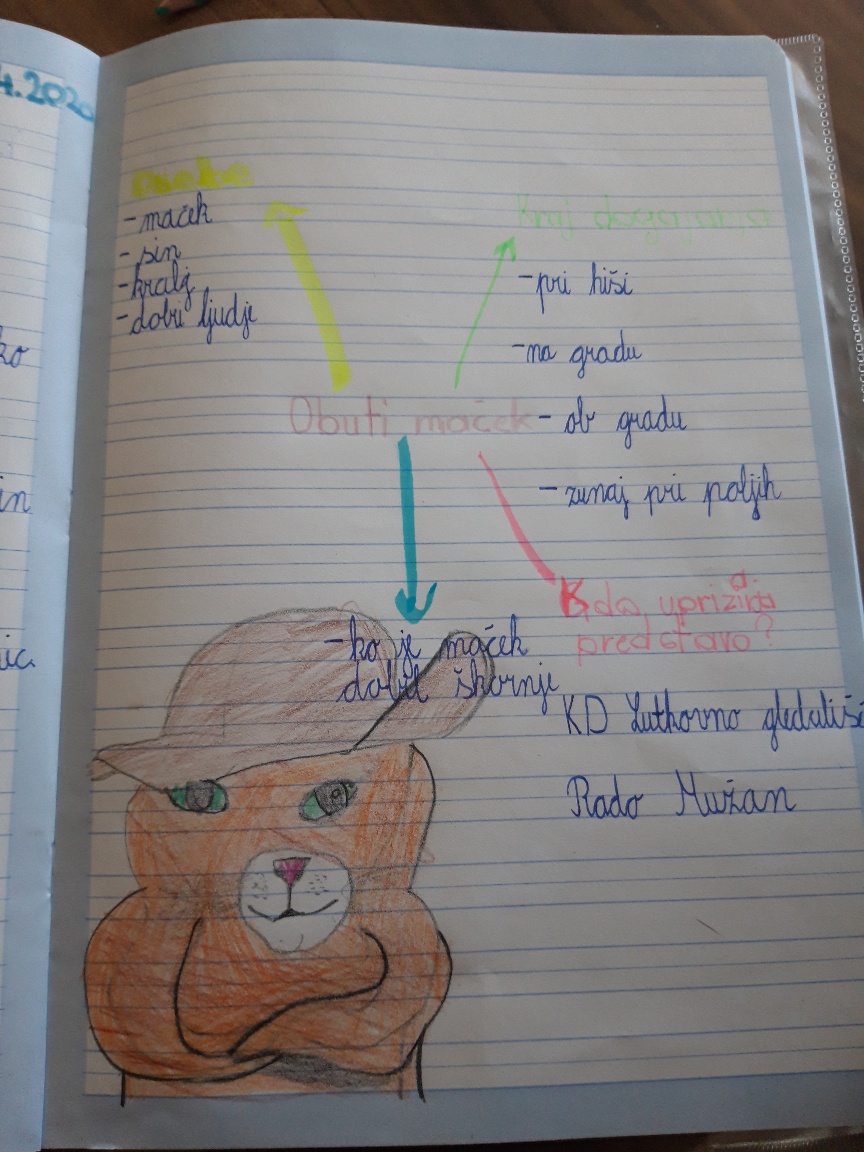 4.2020
Osebe
- maček
- sin
- kralj
- dobri ljudje
Kraj dogajanja
- pri hiši
- na gradu
- ob gradu
- zunaj pri poljih
Obuti maček
- ko je maček
dobil škornje
Kdo uprizarja
predstavo?
KD Lutkovno gledališč
Rado Mužan
ko
in